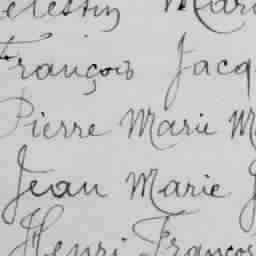 elestin Mari
François Jacq
Pierre Marie M
Jean Marie J
Henri François